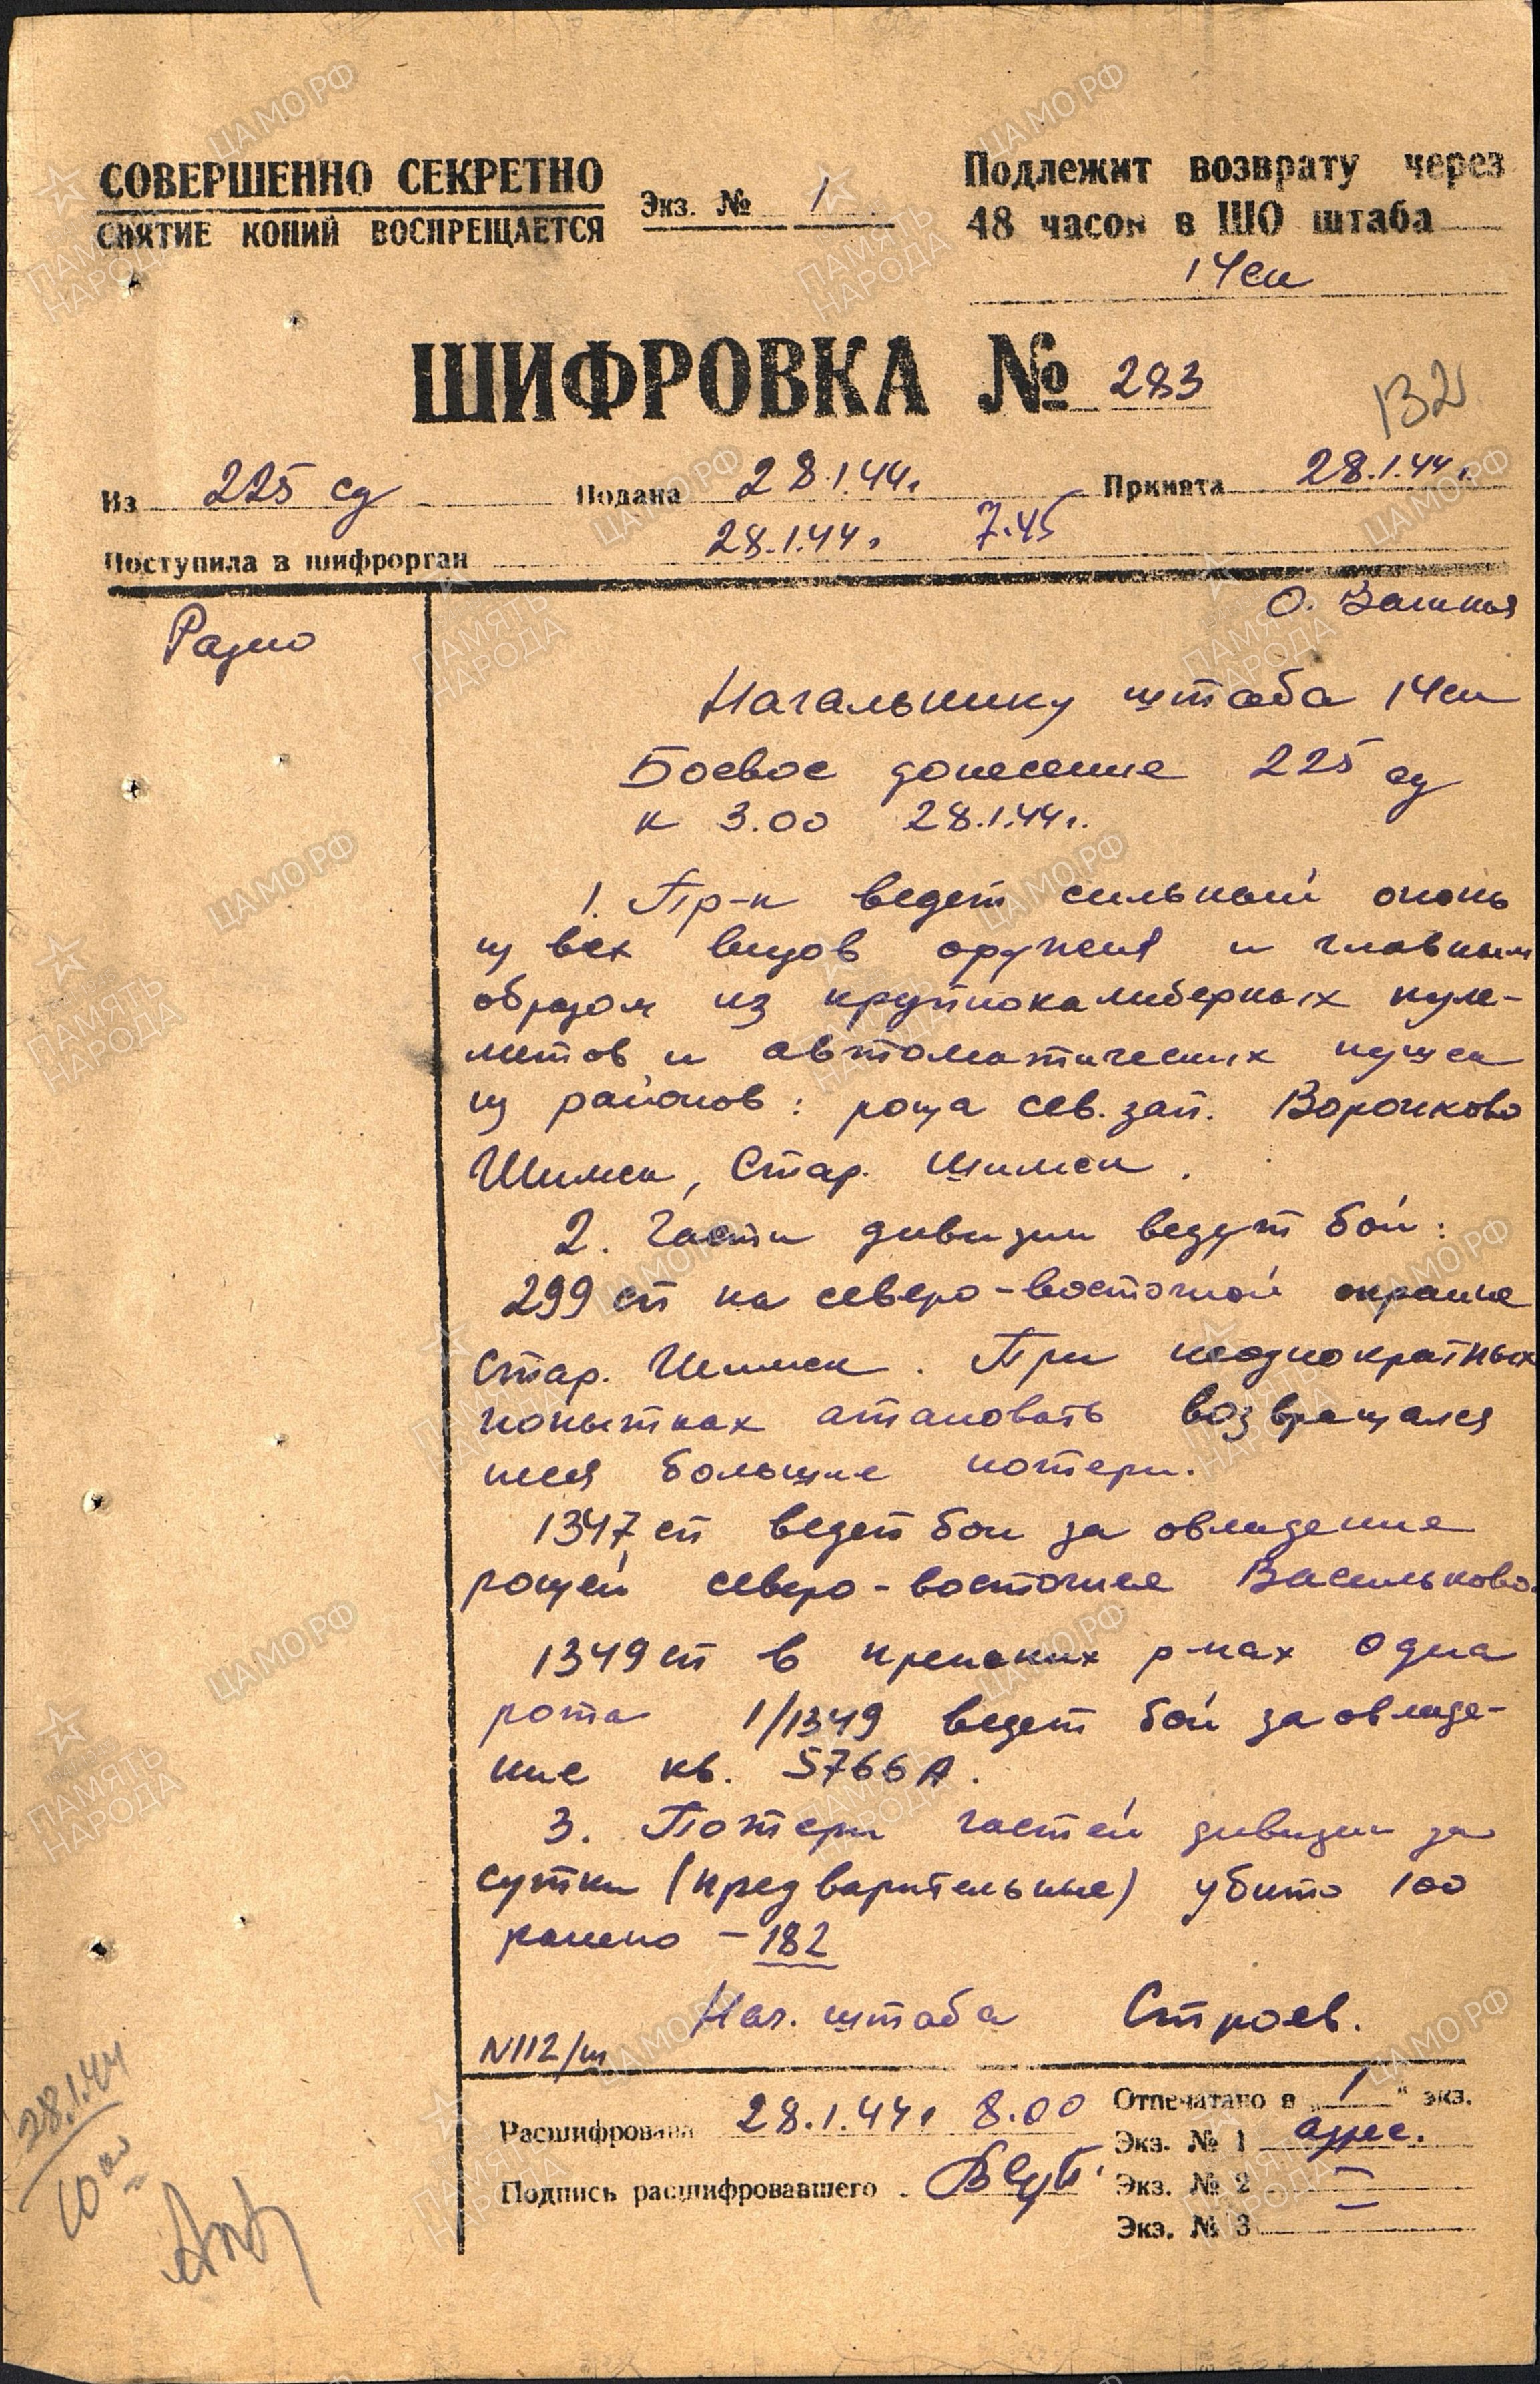 СОВЕРШЕННО СЕКРЕТНО
СНЯТИЕ КОПИЙ ВОСПРЕЩАЕТСЯ
Экз. № 1
Подлежит возврату через
48 часов в ШО штаба
14 ск
ШИФРОВКА № 283
132
Из 225 сд Подана 28.1.44г. Принята 28.1.44г.
Поступила в шифрорган 28.1.44г. 7.45
Радио
Начальнику штаба 14 ск
Боевое донесение 225 сд
к 3.00 28.1.44г.
1. Пр-к ведет сильный огонь
из всех видов оружия и главным
образом из крупнокалиберных пуле-
метов и автоматических пушек
из районов: роща сев. зап. Воронково
Шимск, Стар. Шимск.
2. Части дивизии ведут бой:
299 сп на северо-восточной окраине
Стар. Шимск. При неоднократных
попытках атаковать возвращался
неся большие потери.
1347 сп ведет бои за овладение
рощей северо-восточнее Васильково
1349 сп в прежних р-нах одна
рота 1/1349 ведет бой за овладе-
ние кв. 5766А.
3. Потери частей дивизии за
сутки (предварительные) убито 100
ранено - 182
Нач. штаба Строев.
N112/ш
Расшифрована 28.1.44г 8.00
Подпись расшифровавшего
Отпечатано в „1“ экз.
Экз. № 1 адрес.
Экз. № 2
Экз. № 3
28.1.44
10 00
ПАМЯТЬ НАРОДА
ЦАМО.РФ